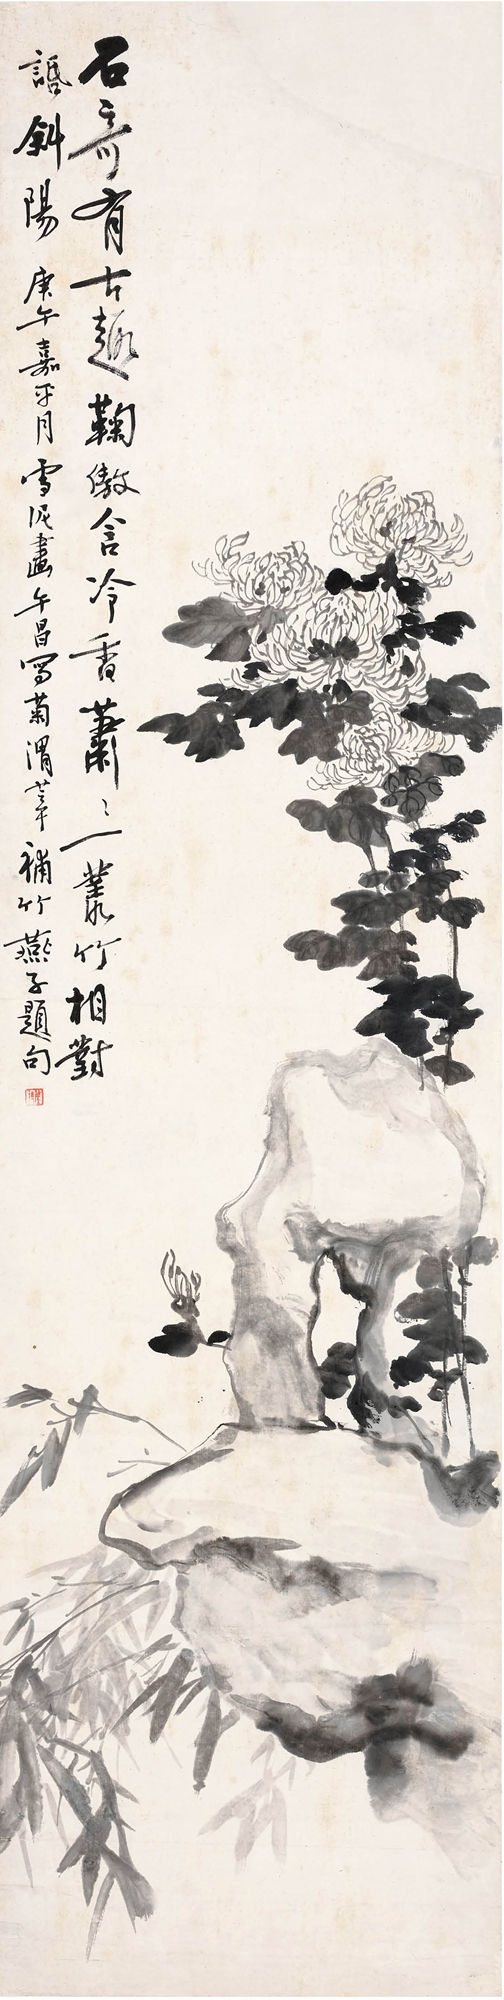 石奇有古趣鞠傲含冷香蕭〻一叢竹相對
話斜陽 庚午嘉平月雪泥畫午昌寫菊渭莘補竹燕子題句